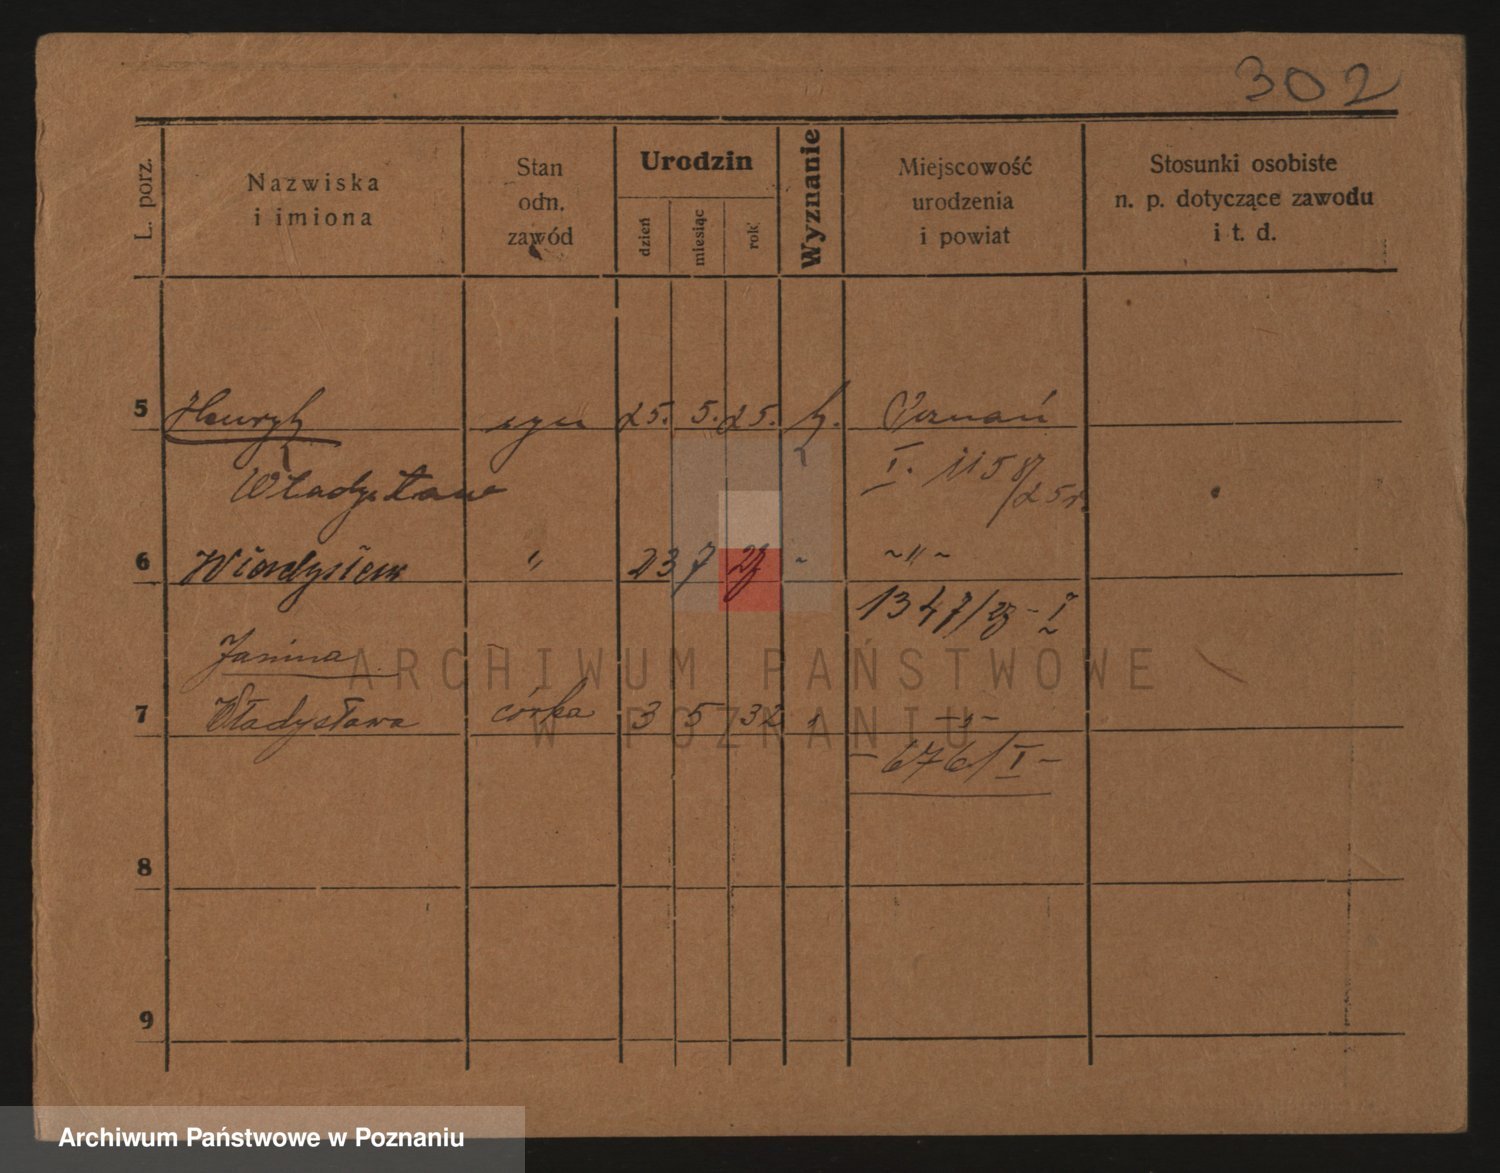 302
L. porz.
Nazwiska
i imiona
Stan
odn.
zawód
Urodzin
dzień
miesiąc
rok
Wyznanie
Miejscowość
urodzenia
i powiat
Stosunki osobiste
n. p. dotyczące zawodu
i t. d.
5 Henryk syn 25. 5. 25. k. Poznań
Władysław I. 1158/25r.
6 " 23 7 ~ " ~
1347/ - I
Janina
7 Władysława córka 3 5 32 " - " -
- 676/I -
8
9
ARCHIWUM PAŃSTWOWE
W POZNANIU
Archiwum Państwowe w Poznaniu